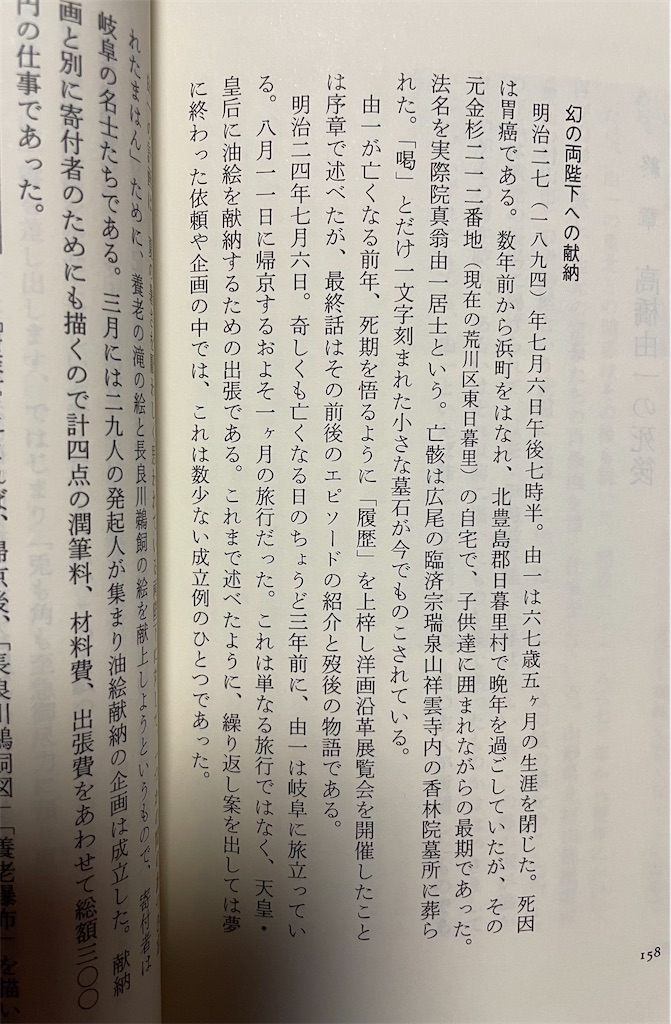 幻の両陛下への献納
明治二七（一八九四）年七月六日午後七時半。由一は六七歳五ヶ月の生涯を閉じた。死因
は胃癌である。数年前から浜町をはなれ、北豊島郡日暮里村で晩年を過ごしていたが、その
元金杉二一二番地（現在の荒川区東日暮里）の自宅で、子供達に囲まれながらの最期であった。
法名を実際院真翁由一居士という。亡骸は広尾の臨済宗瑞泉山祥雲寺内の香林院墓所に葬ら
れた。「喝」とだけ一文字刻まれた小さな墓石が今でものこされている。
由一が亡くなる前年、死期を悟るように「履歴」を上梓し洋画沿革展覧会を開催したこと
は序章で述べたが、最終話はその前後のエピソードの紹介と歿後の物語である。
明治二四年七月六日。奇しくも亡くなる日のちょうど三年前に、由一は岐阜に旅立ってい
る。八月一一日に帰京するおよそ一ヶ月の旅行だった。これは単なる旅行ではなく、天皇・
皇后に油絵を献納するための出張である。これまで述べたように、繰り返し案を出しては夢
に終わった依頼や企画の中では、これは数少ない成立例のひとつであった。
158
れたまはん」ために、養老の滝の絵と長良川鵜飼の絵を献上しようというもので、寄付者は
岐阜の名士たちである。三月には二九人の発起人が集まり油絵献納の企画は成立した。献納
画と別に寄付者のためにも描くので計四点の潤筆料、材料費、出張費をあわせて総額三〇〇
円の仕事であった。
帰京後、「長良川鵜飼図」「養老瀑布」を描い
終章 高橋由一の死後